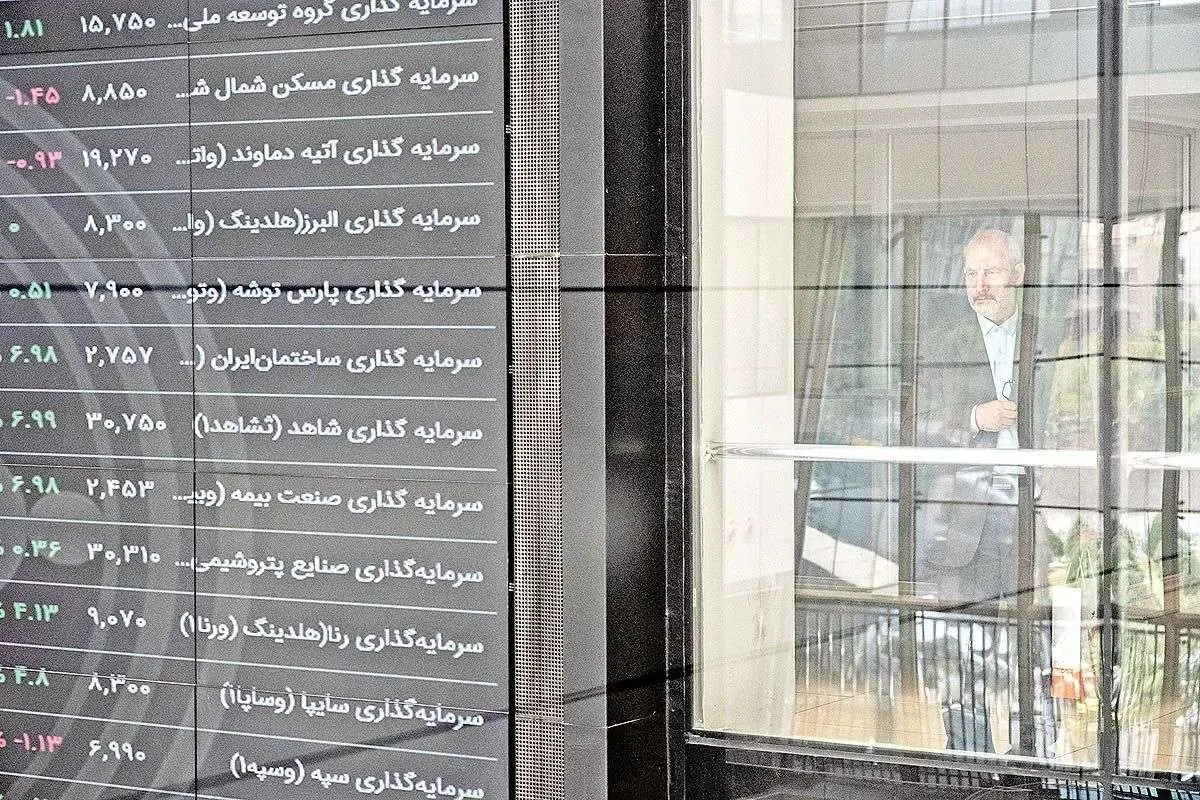 سرمایه گذاری گروه توسعه ملی... ۱۵,۷۵۰ ۱.۸۱
سرمایه گذاری مسکن شمال ش... ۸,۸۵۰ -۱.۴۵
سرمایه گذاری آتیه دماوند (وات... ۱۹,۲۷۰ -۰.۹۳
سرمایه گذاری البرز(هلدینگ (وا... ۸,۳۰۰ ۰
سرمایه گذاری پارس توشه (وتو... ۷,۹۰۰ ۰.۵۱
سرمایه گذاری ساختمان‌ایران (... ۲,۷۵۷ ۶.۹۸
سرمایه گذاری شاهد (ثشاهد۱) ۳۰,۷۵۰ ۶.۹۹
سرمایه گذاری صنعت بیمه (وبی... ۲,۴۵۳ ۶.۹۸
سرمایه‌گذاری صنایع پتروشیمی... ۳۰,۳۱۰ ۰.۳۶ %
سرمایه‌گذاری رنا(هلدینگ (ورنا۱) ۹,۰۷۰ ۴.۱۳ %
سرمایه‌گذاری سایپا (وساپا۱) ۸,۳۰۰ ۴.۸ %
سرمایه‌گذاری سپه (وسپه۱) ۶,۹۹۰ -۱.۱۳ %